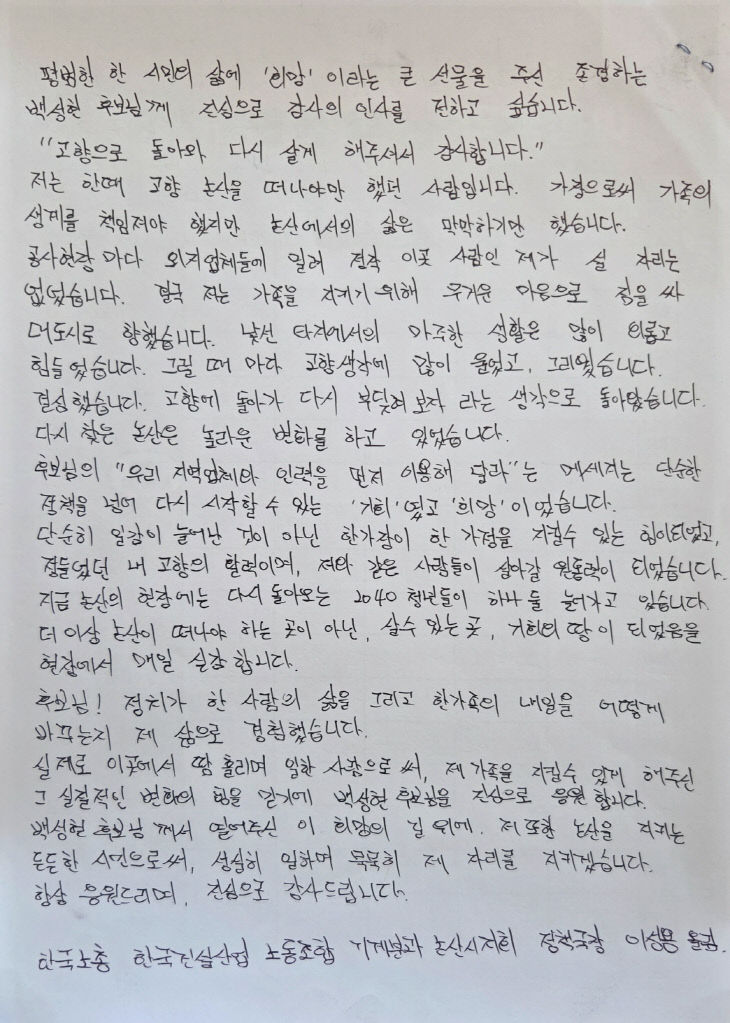 평범한 한 시민의 삶에 '희망' 이라는 큰 선물을 주신 존경하는
백성현 후보님께 진심으로 감사의 인사를 전하고 싶습니다.
"고향으로 돌아와 다시 살게 해주셔서 감사합니다."
저는 한때 고향 논산을 떠나야만 했던 사람입니다. 가장으로써 가족의
생계를 책임져야 했지만 논산에서의 삶은 막막하기만 했습니다.
공사현장 마다 외지업체들에 밀려 정작 이곳 사람인 제가 설 자리는
없었습니다. 결국 저는 가족을 지키기 위해 무거운 마음으로 짐을 싸
대도시로 향했습니다. 낯선 타지에서의 마주한 생활은 많이 외롭고
힘들었습니다. 그럴 때 마다 고향생각에 많이 울었고, 그리웠습니다.
결심했습니다. 고향에 돌아가 다시 부딪혀 보자 라는 생각으로 돌아왔습니다.
다시 찾은 논산은 놀라운 변화를 하고 있었습니다.
후보님의 "우리 지역업체와 인력을 먼저 이용해 달라"는 메세지는 단순한
정책을 넘어 다시 시작할 수 있는 '기회'였고 '희망'이었습니다.
단순히 일감이 늘어난 것이 아닌 한가장이 한 가정을 지킬수 있는 힘이되었고,
정들었던 내 고향의 활력이며, 저와 같은 사람들이 살아갈 원동력이 되었습니다.
지금 논산의 현장에는 다시 돌아오는 2040 청년들이 하나 둘 늘어가고 있습니다.
더이상 논산이 떠나야 하는 곳이 아닌, 살수 있는 곳, 기회의 땅이 되었음을
현장에서 매일 실감합니다.
후보님! 정치가 한 사람의 삶을 그리고 한가족의 내일을 어떻게
바꾸는지 제 삶으로 경험했습니다.
실제로 이곳에서 땀 흘리며 일한 사람으로써, 제 가족을 지킬수 있게 해주신
그 실질적인 변화의 힘을 믿기에 백성현 후보님을 진심으로 응원합니다.
백성현 후보님께서 열어주신 이 희망의 길 위에. 저 또한 논산을 지키는
든든한 시민으로써, 성실히 일하며 묵묵히 제 자리를 지키겠습니다.
항상 응원드리며, 진심으로 감사드립니다.
한국노총 한국건설산업 노동조합 기계분과 논산시지회 정책국장 이성용 올림.